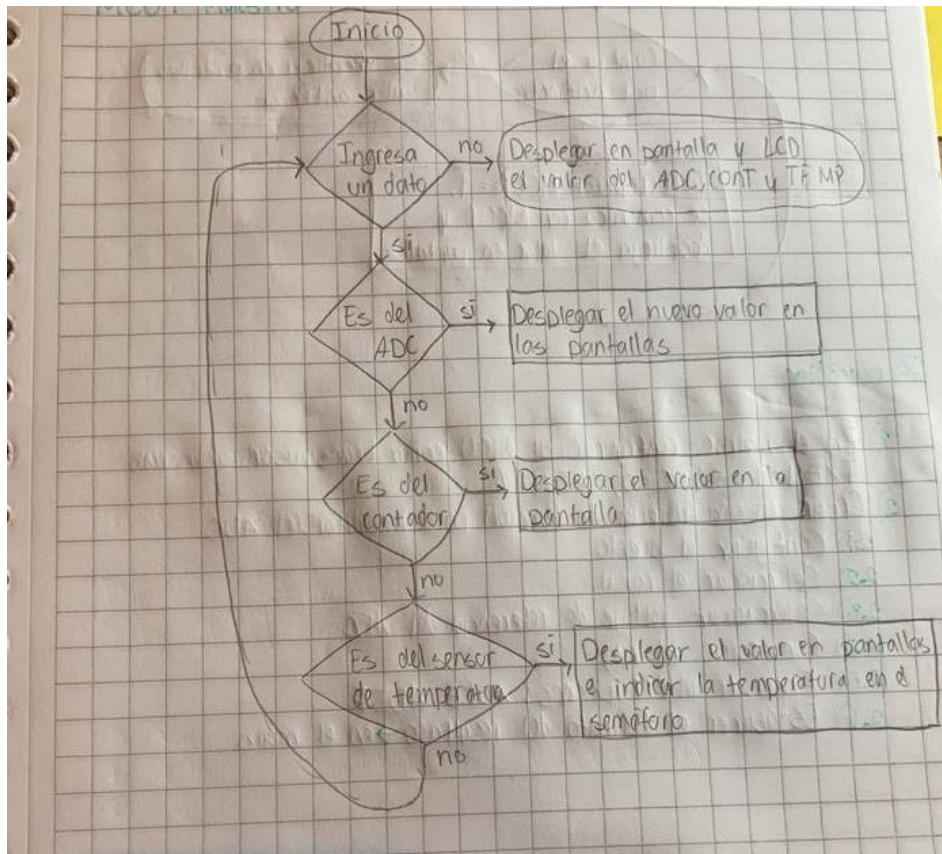 Inicio
Ingresa
un dato
no
Desplegar en pantalla y LCD
el valor del ADC, CONT y TEMP
si
Es del
ADC
si
Desplegar el nuevo valor en
las pantallas
no
Es del
contador
si
Desplegar el valor en la
pantalla
no
Es del sensor
de temperatura
si
Desplegar el valor en pantallas
e indicar la temperatura en el
semáforo
no